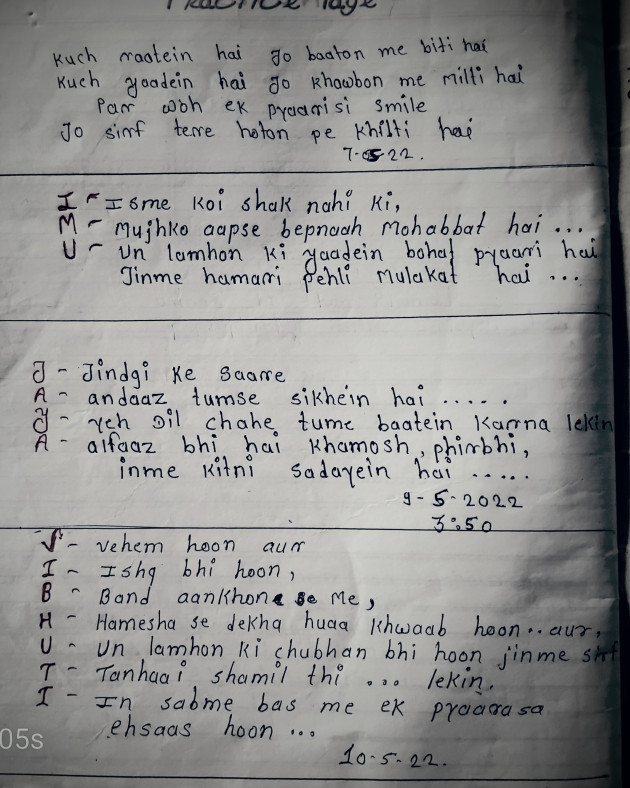 Practice Page
Kuch raatein hai Jo baaton me biti hai
Kuch yaadein hai Jo khawbon me milti hai
Parr woh ek pyaarisi smile
Jo sirrf terre hoton pe khilti hai
7-05-22.
I - Isme koi shak nahi ki,
M - Mujhko aapse bepnaah Mohabbat hai ...
U - Un lamhon ki yaadein bohat pyaari hai
Jinme hamari pehli Mulakat hai ...
J - Jindgi ke saare
A - andaaz tumse sikhein hai .....
Y - yeh Dil chahe tume baatein karrna lekin
A - alfaaz bhi hai khamosh, phirbhi,
inme kitni sadayein hai .....
9-5-2022
3:50
V - vehem hoon aurr
I - Ishq bhi hoon,
B - Band aankhon se Me,
H - Hamesha se dekha huaa khwaab hoon.. aur,
U - Un lamhon ki chubhan bhi hoon jinme sirf
T - Tanhaai shamil thi ... lekin,
I - In sabme bas me ek pyaarasa
ehsaas hoon ...
05s
10-5-22.